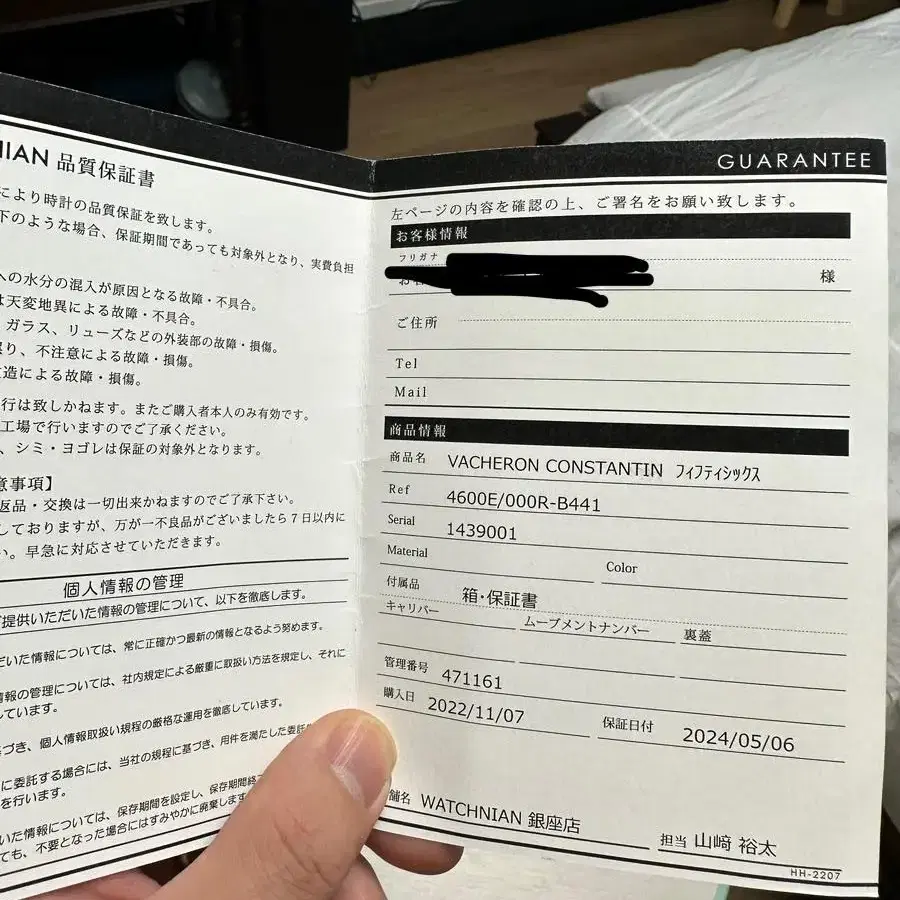 NIAN 品質保証書
により時計の品質保証を致します。
下のような場合、保証期間であっても対象外となり、実費負担
への水分の混入が原因となる故障・不具合。
は天変地異による故障・不具合。
ガラス、リューズなどの外装部の故障・損傷。
り、不注意による故障・損傷。
造による故障・損傷。
行は致しかねます。またご購入者本人のみ有効です。
工場で行いますのでご了承ください。
、シミ・ヨゴレは保証の対象外となります。
意事項】
返品・交換は一切出来かねますのでご了承下さい。
しておりますが、万が一不良品がございましたら7日以内に
い。早急に対応させていただきます。
個人情報の管理
提供いただいた情報の管理について、以下を徹底します。
だいた情報については、常に正確かつ最新の情報となるよう努めます。
情報の管理については、社内規定による厳重に取扱い方法を規定し、それに
しています。
基づき、個人情報取扱い規程の厳格な運用を徹底しています。
に委託する場合には、当社の規程に基づき、用件を満たした委託
を行います。
いた情報については、保存期間を設定し、保存期間終
ても、不要となった場合にはすみやかに廃棄します
GUARANTEE
左ページの内容を確認の上、ご署名をお願い致します。
お客様情報
フリガナ
様
ご住所
Tel
Mail
商品情報
商品名 VACHERON CONSTANTIN フィフティシックス
Ref 4600E/000R-B441
Serial 1439001
Material Color
付属品 箱・保証書
キャリバー ムーブメントナンバー 裏蓋
管理番号 471161
購入日 2022/11/07 保証日付 2024/05/06
舗名 WATCHNIAN 銀座店
担当 山﨑 裕太
HH-2207